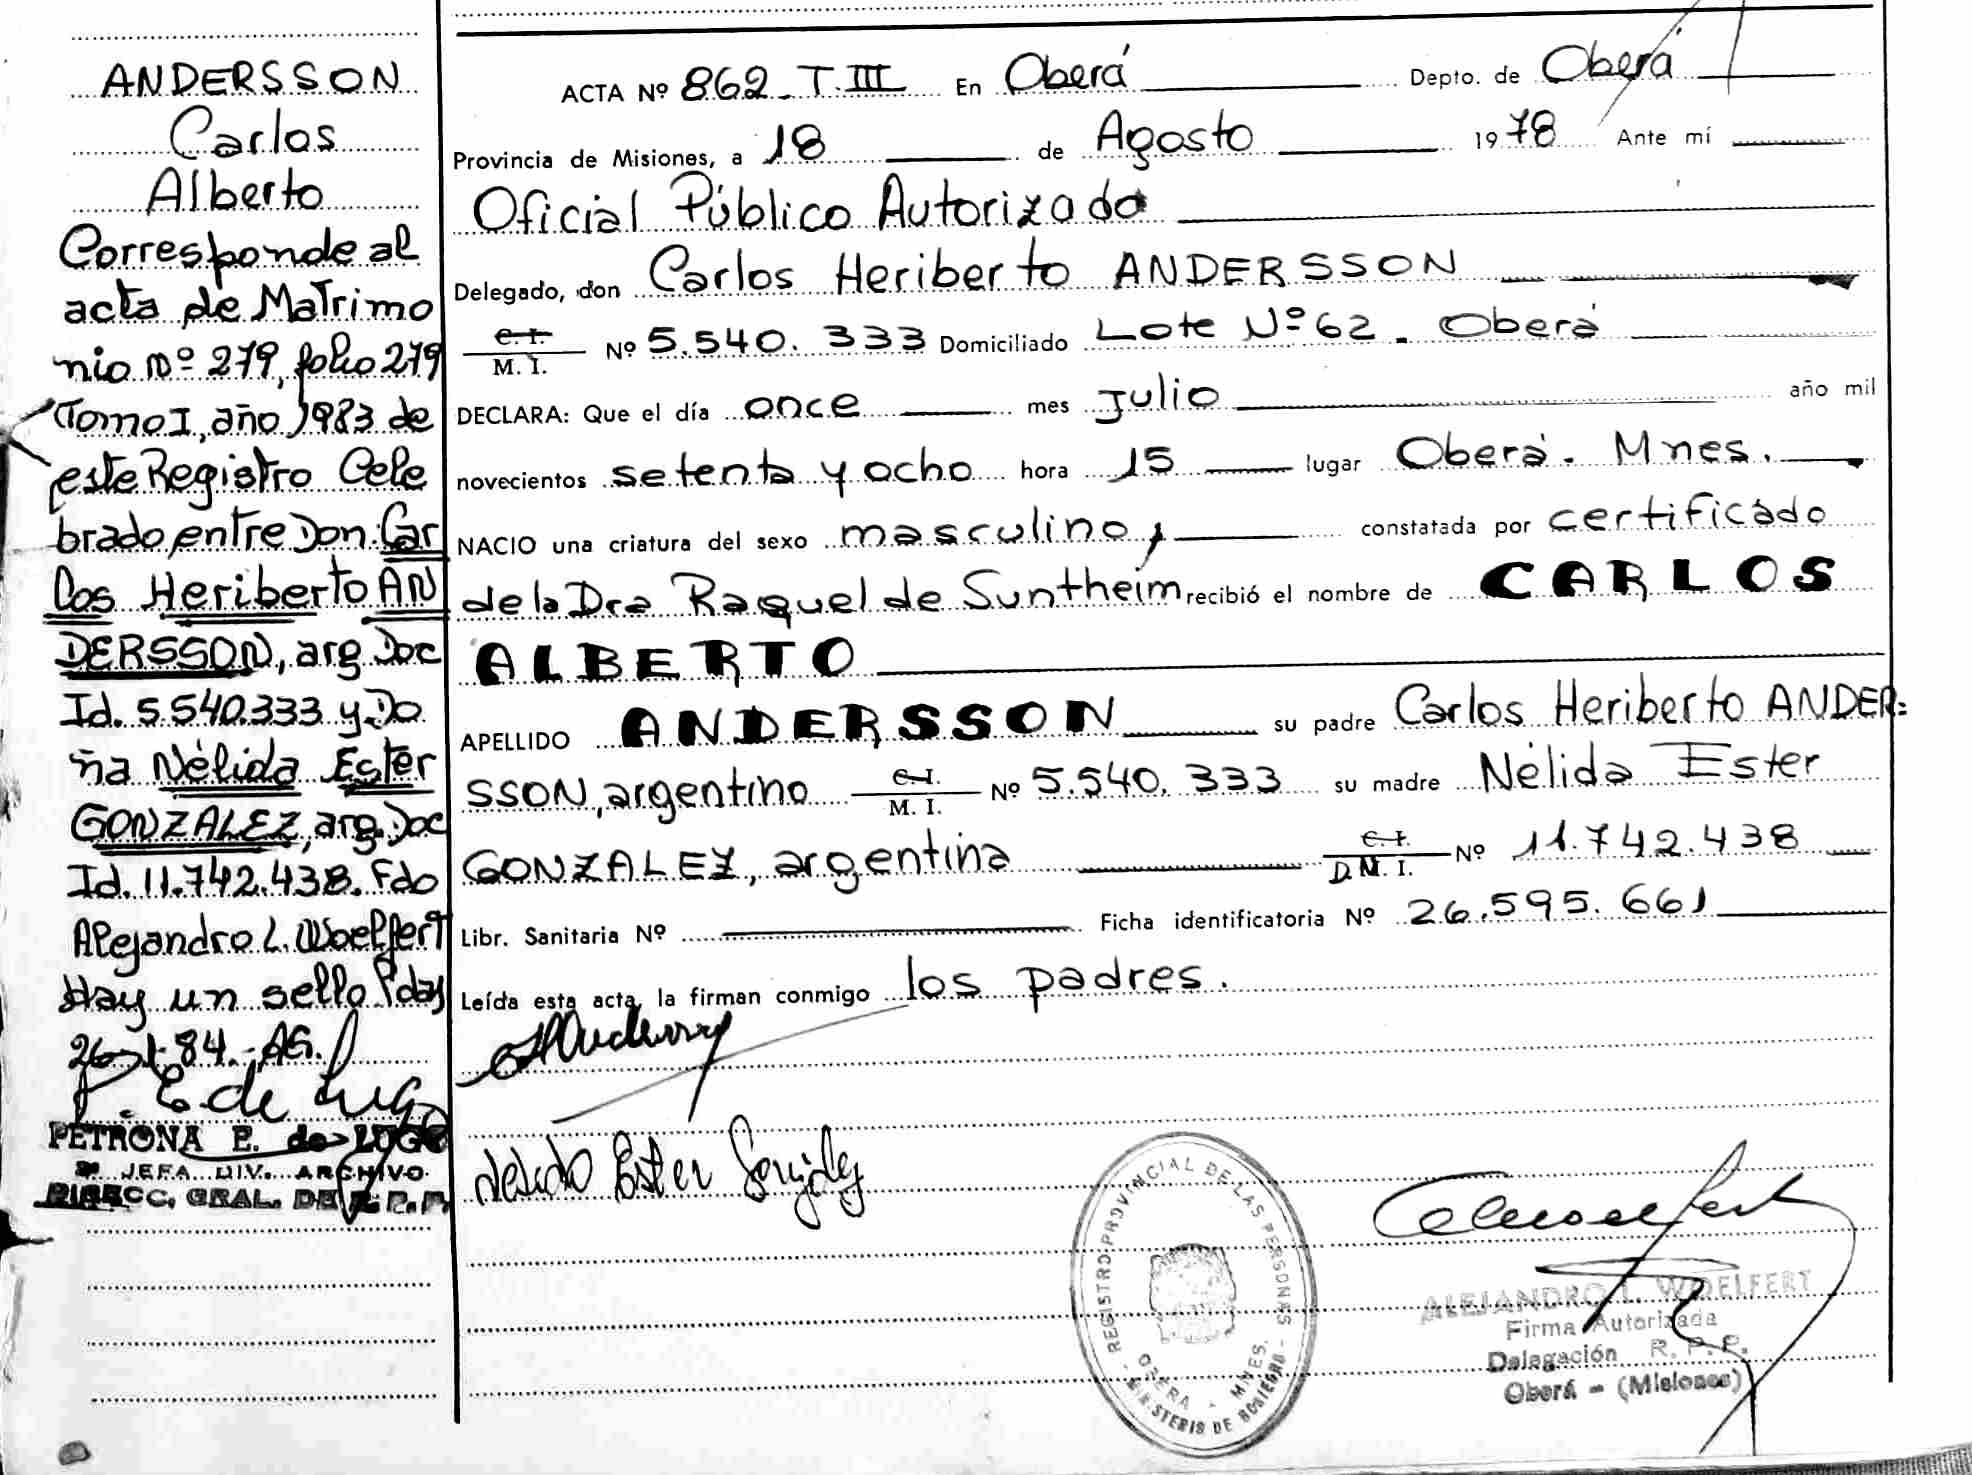 ANDERSSON
Carlos
Alberto
Corresponde al
acta de Matrimo
nio nº 279, folio 279
Tomo I, año 1983 de
este Registro Cele
brado entre Don Car
los Heriberto AN
DERSSON, arg. Doc
Id. 5.540.333 y Do
ña Nélida Ester
GONZALEZ, arg. Doc
Id. 11.742.438. Fdo
Alejandro L. Woelfert
Hay un sello Pdas
26-1-84. AG.
E. de Lugo
PETRONA E. de LUGO
JEFA DIV. ARCHIVO
DIRECC. GRAL. DEL R. P. P.
ACTA Nº 862 - T. III En Oberá Depto. de Oberá
Provincia de Misiones, a 18 de Agosto 1978 Ante mí
Oficial Público Autorizado
Delegado, don Carlos Heriberto ANDERSSON
C. I.
M. I. Nº 5.540.333 Domiciliado Lote Nº 62 - Oberá
DECLARA: Que el día once mes julio año mil
novecientos setenta y ocho hora 15 lugar Oberá - Mnes.
NACIO una criatura del sexo masculino, constatada por certificado
de la Dra Raquel de Suntheim recibió el nombre de CARLOS
ALBERTO
APELLIDO ANDERSSON su padre Carlos Heriberto ANDER-
SSON, argentino C. I. M. I. Nº 5.540.333 su madre Nélida Ester
GONZALEZ, argentina C. I. D. N. I. Nº 11.742.438
Libr. Sanitaria Nº Ficha identificatoria Nº 26.595.661
Leída esta acta, la firman conmigo los padres.
Nelida Ester Gonzalez
REGISTRO PROVINCIAL DE LAS PERSONAS
OBERA - MNES.
MINISTERIO DE GOBIERNO
ALEJANDRO L. WOELFERT
Firma Autorizada
Delegación R. P. P.
Oberá - (Misiones)